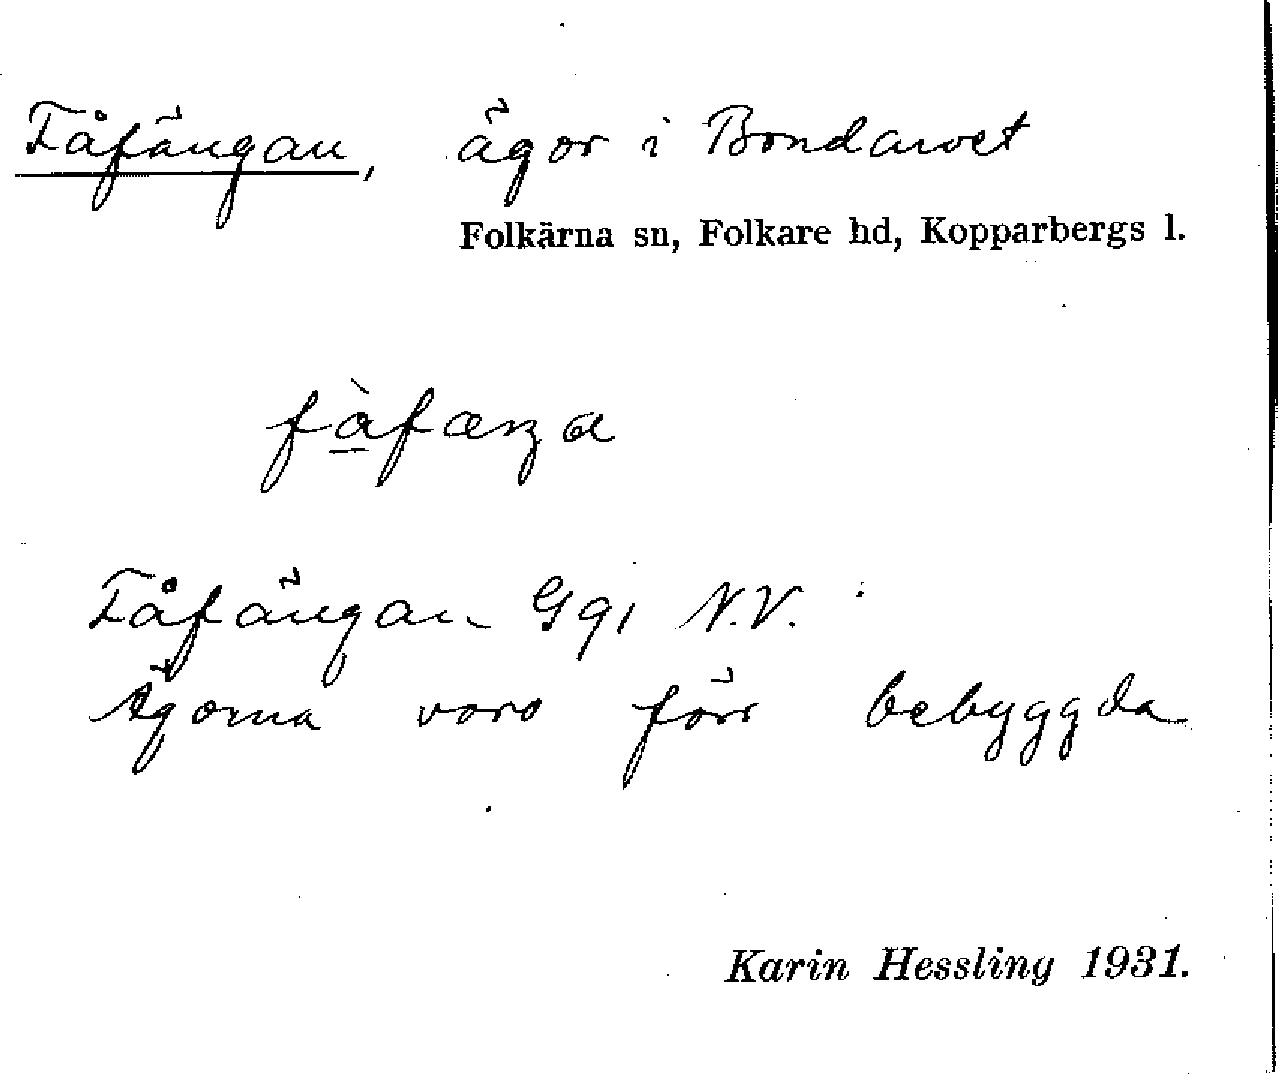 Fåfängan, ägor i Bondarvet
Folkärna sn, Folkare hd, Kopparbergs l.
Fåfängan Gqi N.V.
Ägorna voro förr bebyggda
Karin Hessling 1931.